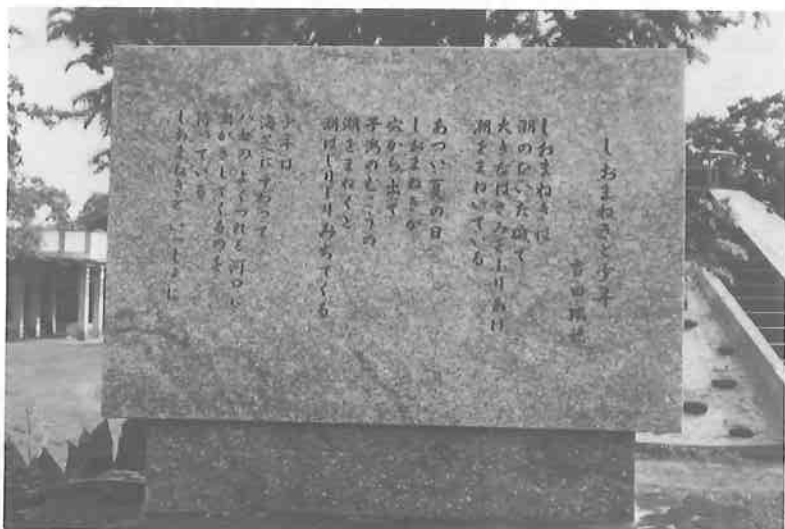 しおまねきと少年
吉田瑞穂
しおまねきは
潮のひいた潟で
大きなはさみをふりあげ
潮をまねいている
あつい夏の日
しおまねきが
穴から出て
干潟のむこうの
潮をまねくと
潮はじりじりみちてくる
少年は
海芝にすわって
ハゼのよくつれる河口に
潮がさしてくるのを
待っている
しおまねきといっしょに